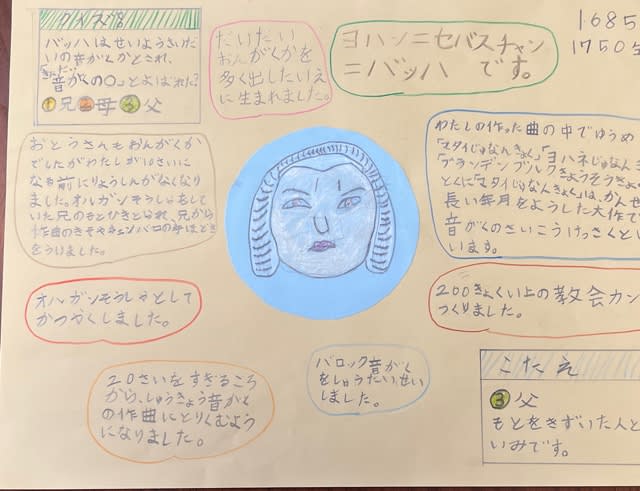 クイズ
バッハはせいようさいだ
いの音がくかとされ、
「きんだい音がくの○」とよばれた?
①兄②母③父
だいだい
おんがくかを
多く出したいえ
に生まれました。
ヨハン=セバスチャン
=バッハ です。
1685
1750
おとうさんもおんがくか
でしたがわたしが10さいに
なる前にりょうしんがなくなり
ました。オルガンそうしゃをして
いた兄のもとひきとられ、兄から
作曲のきそやチェンバロの手ほどき
をうけました。
わたしの作った曲の中でゆうめ
「マタイじゅなんきょく」「ヨハネじゅなん
ブランデンブルクきょうそうきょ
とくに「マタイじゅなんきょく」は、かんせ
長い年月をようした大作で
音がくのさいこうけっさくとい
います。
オルガンそうしゃとして
かつやくしました。
200きょくい上の教会カン
つくりました。
20さいをすぎるころ
から、しゅうきょう音がく
の作曲にとりくむよう
になりました。
バロック音がく
をしゅうたいせい
しました。
こたえ
③父
もとをきずいた人と
いみです。